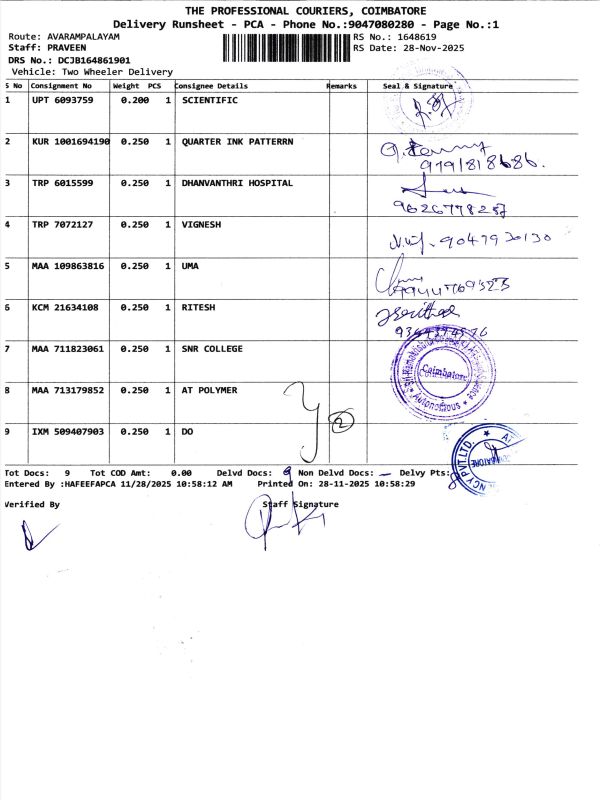 THE PROFESSIONAL COURIERS, COIMBATORE
Delivery Runsheet - PCA - Phone No.:9047080280 - Page No.:1
Route: AVARAMPALAYAM RS No.: 1648619
Staff: PRAVEEN RS Date: 28-Nov-2025
DRS No.: DCJB164861901
Vehicle: Two Wheeler Delivery
S No Consignment No Weight PCS Consignee Details Remarks Seal & Signature
1 UPT 6093759 0.200 1 SCIENTIFIC
2 KUR 1001694190 0.250 1 QUARTER INK PATTERRN
9791818686.
3 TRP 6015599 0.250 1 DHANVANTHRI HOSPITAL
4 TRP 7072127 0.250 1 VIGNESH 9047930130
5 MAA 109863816 0.250 1 UMA
6 KCM 21634108 0.250 1 RITESH
7 MAA 711823061 0.250 1 SNR COLLEGE Coimbatore
Autonomous
8 MAA 713179852 0.250 1 AT POLYMER
2
9 IXM 509407903 0.250 1 DO
Tot Docs: 9 Tot COD Amt: 0.00 Delvd Docs: 9 Non Delvd Docs: — Delvy Pts: 8
Entered By :HAFEEFAPCA 11/28/2025 10:58:12 AM Printed On: 28-11-2025 10:58:29
Verified By Staff Signature